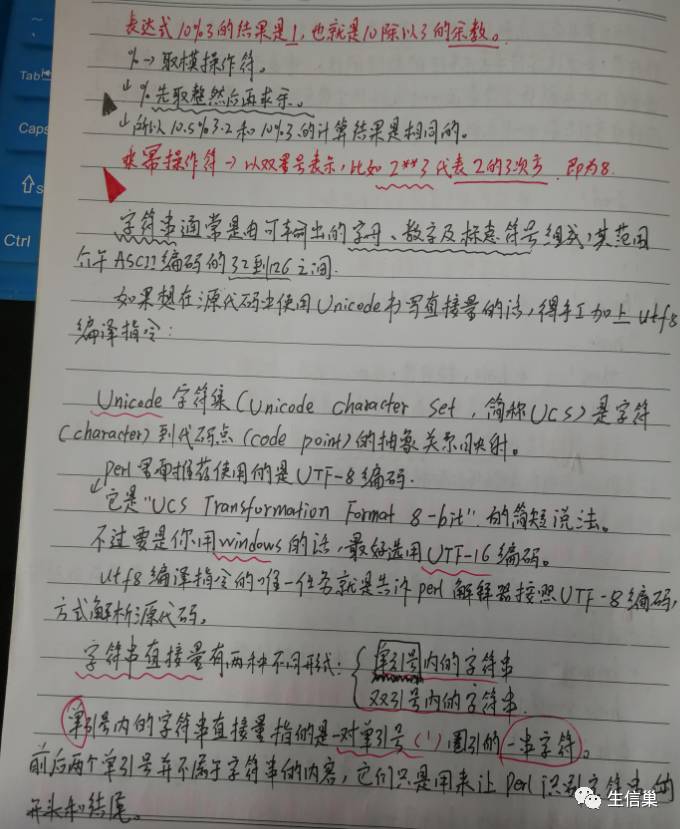 表达式10%3的结果是1,也就是10除以3的余数。
% → 取模操作符。
↓ %先取整然后再求余。
↓ 所以10.5%3.2和10%3的计算结果是相同的。
乘幂操作符→以双星号表示,比如2**3代表2的3次方.即为8.
字符串通常是由可输出的字母、数字及标点符号组成,其范围
介于ASCII编码的32到126之间.
如果想在源代码中使用Unicode书写直接量的话,得手工加上utf8
编译指令:
Unicode字符集(Unicode Character Set,简称UCS)是字符
(character)到代码点(code point)的抽象关系映射。
perl里面推荐使用的是UTF-8编码.
↓它是"UCS Transformation Format 8-bit"的简短说法。
不过要是你用windows的话,最好选用UTF-16编码。
utf8编译指令的唯一任务就是告诉perl解释器按照UTF-8编码,
方式解析源代码。
字符串直接量有两种不同形式:{单引号内的字符串
双引号内的字符串
单引号内的字符串直接量指的是一对单引号(')圈引的一串字符。
前后两个单引号并不属于字符串的内容,它们只是用来让Perl识别字符串的
开头和结尾。
Tab
Caps
⇧s
Ctrl
生信巢